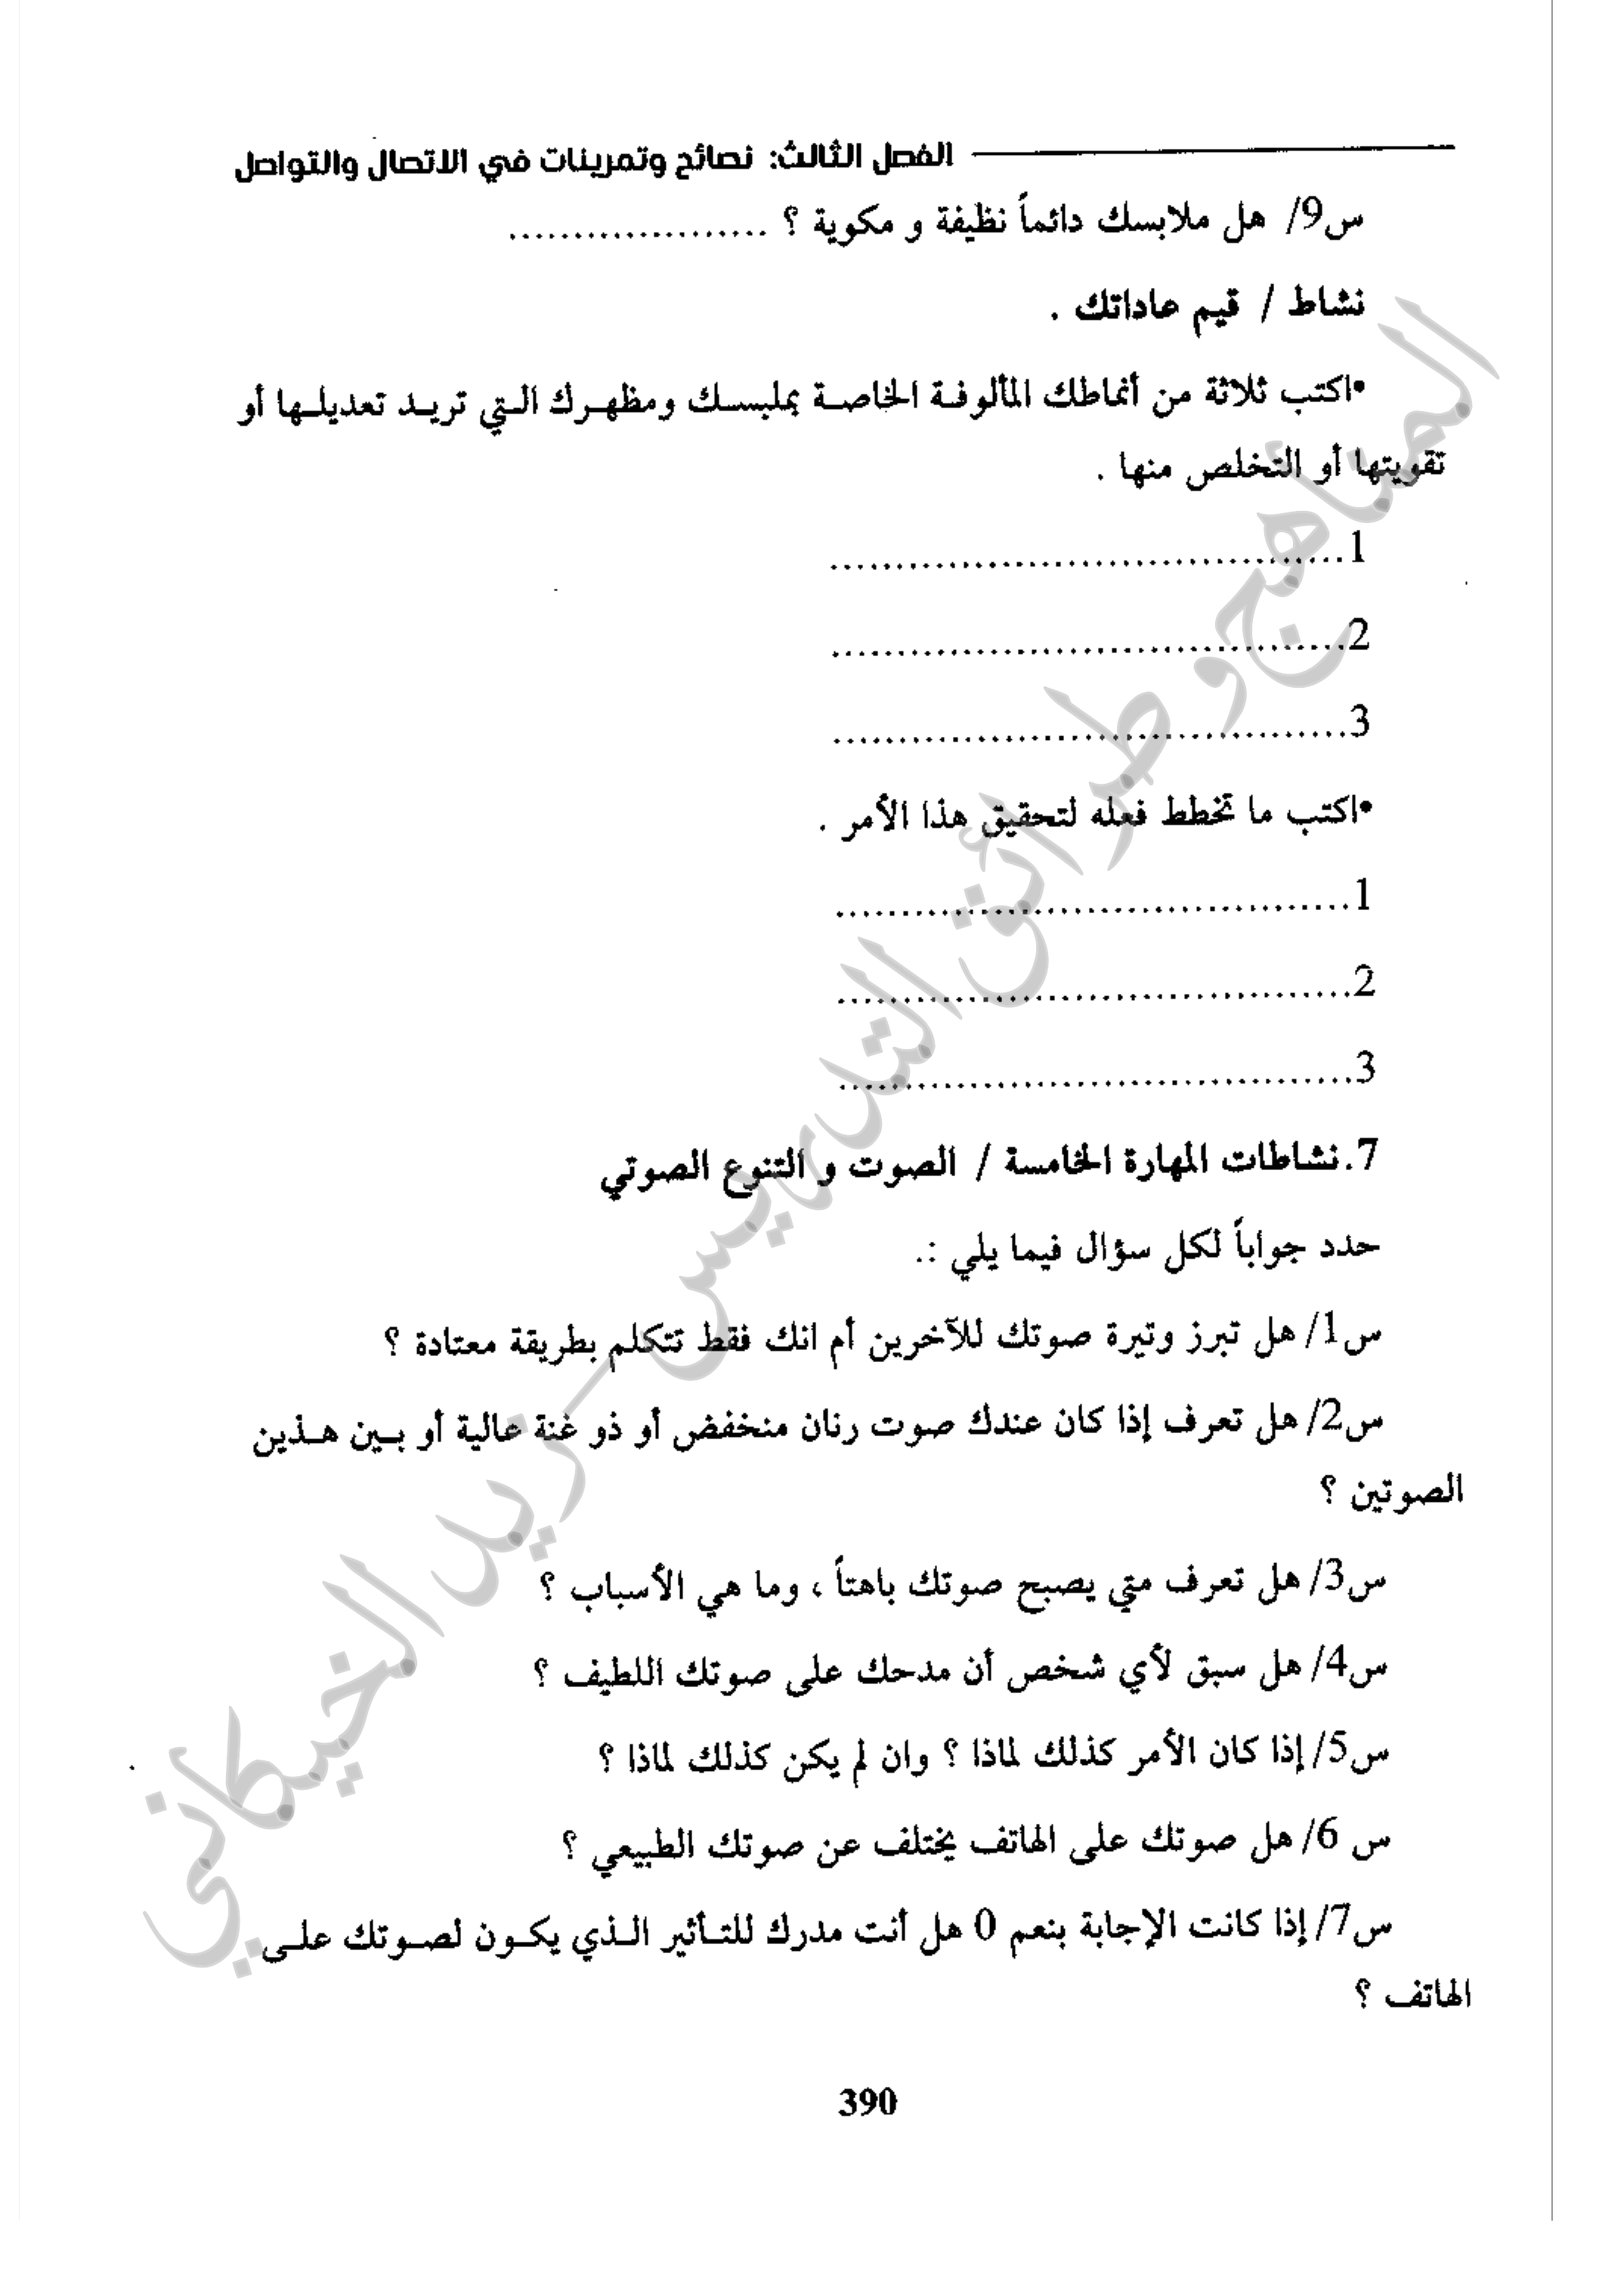 الفصل الثالث: نصائح وتمرينات في الاتصال والتواصل
س9/ هل ملابسك دائماً نظيفة و مكوية ؟ ....................
نشاط / قيم عاداتك .
•اكتب ثلاثة من أنماطك المألوفة الخاصة بملبسك ومظهرك التي تريد تعديلها أو
تقويتها أو التخلص منها .
1.......................................
2.......................................
3.......................................
•اكتب ما تخطط فعله لتحقيق هذا الأمر .
1.......................................
2.......................................
3.......................................
7.نشاطات المهارة الخامسة / الصوت و التنوع الصوتي
حدد جواباً لكل سؤال فيما يلي :.
س1/ هل تبرز وتيرة صوتك للآخرين أم انك فقط تتكلم بطريقة معتادة ؟
س2/ هل تعرف إذا كان عندك صوت رنان منخفض أو ذو غنة عالية أو بين هذين
الصوتين ؟
س3/ هل تعرف متي يصبح صوتك باهتاً ، وما هي الأسباب ؟
س4/ هل سبق لأي شخص أن مدحك على صوتك اللطيف ؟
س5/ إذا كان الأمر كذلك لماذا ؟ وان لم يكن كذلك لماذا ؟
س 6/ هل صوتك على الهاتف يختلف عن صوتك الطبيعي ؟
س7/ إذا كانت الإجابة بنعم 0 هل أنت مدرك للتأثير الذي يكون لصوتك على
الهاتف ؟
390
المناهج وطرائق التدريس - زيد الخيكاني